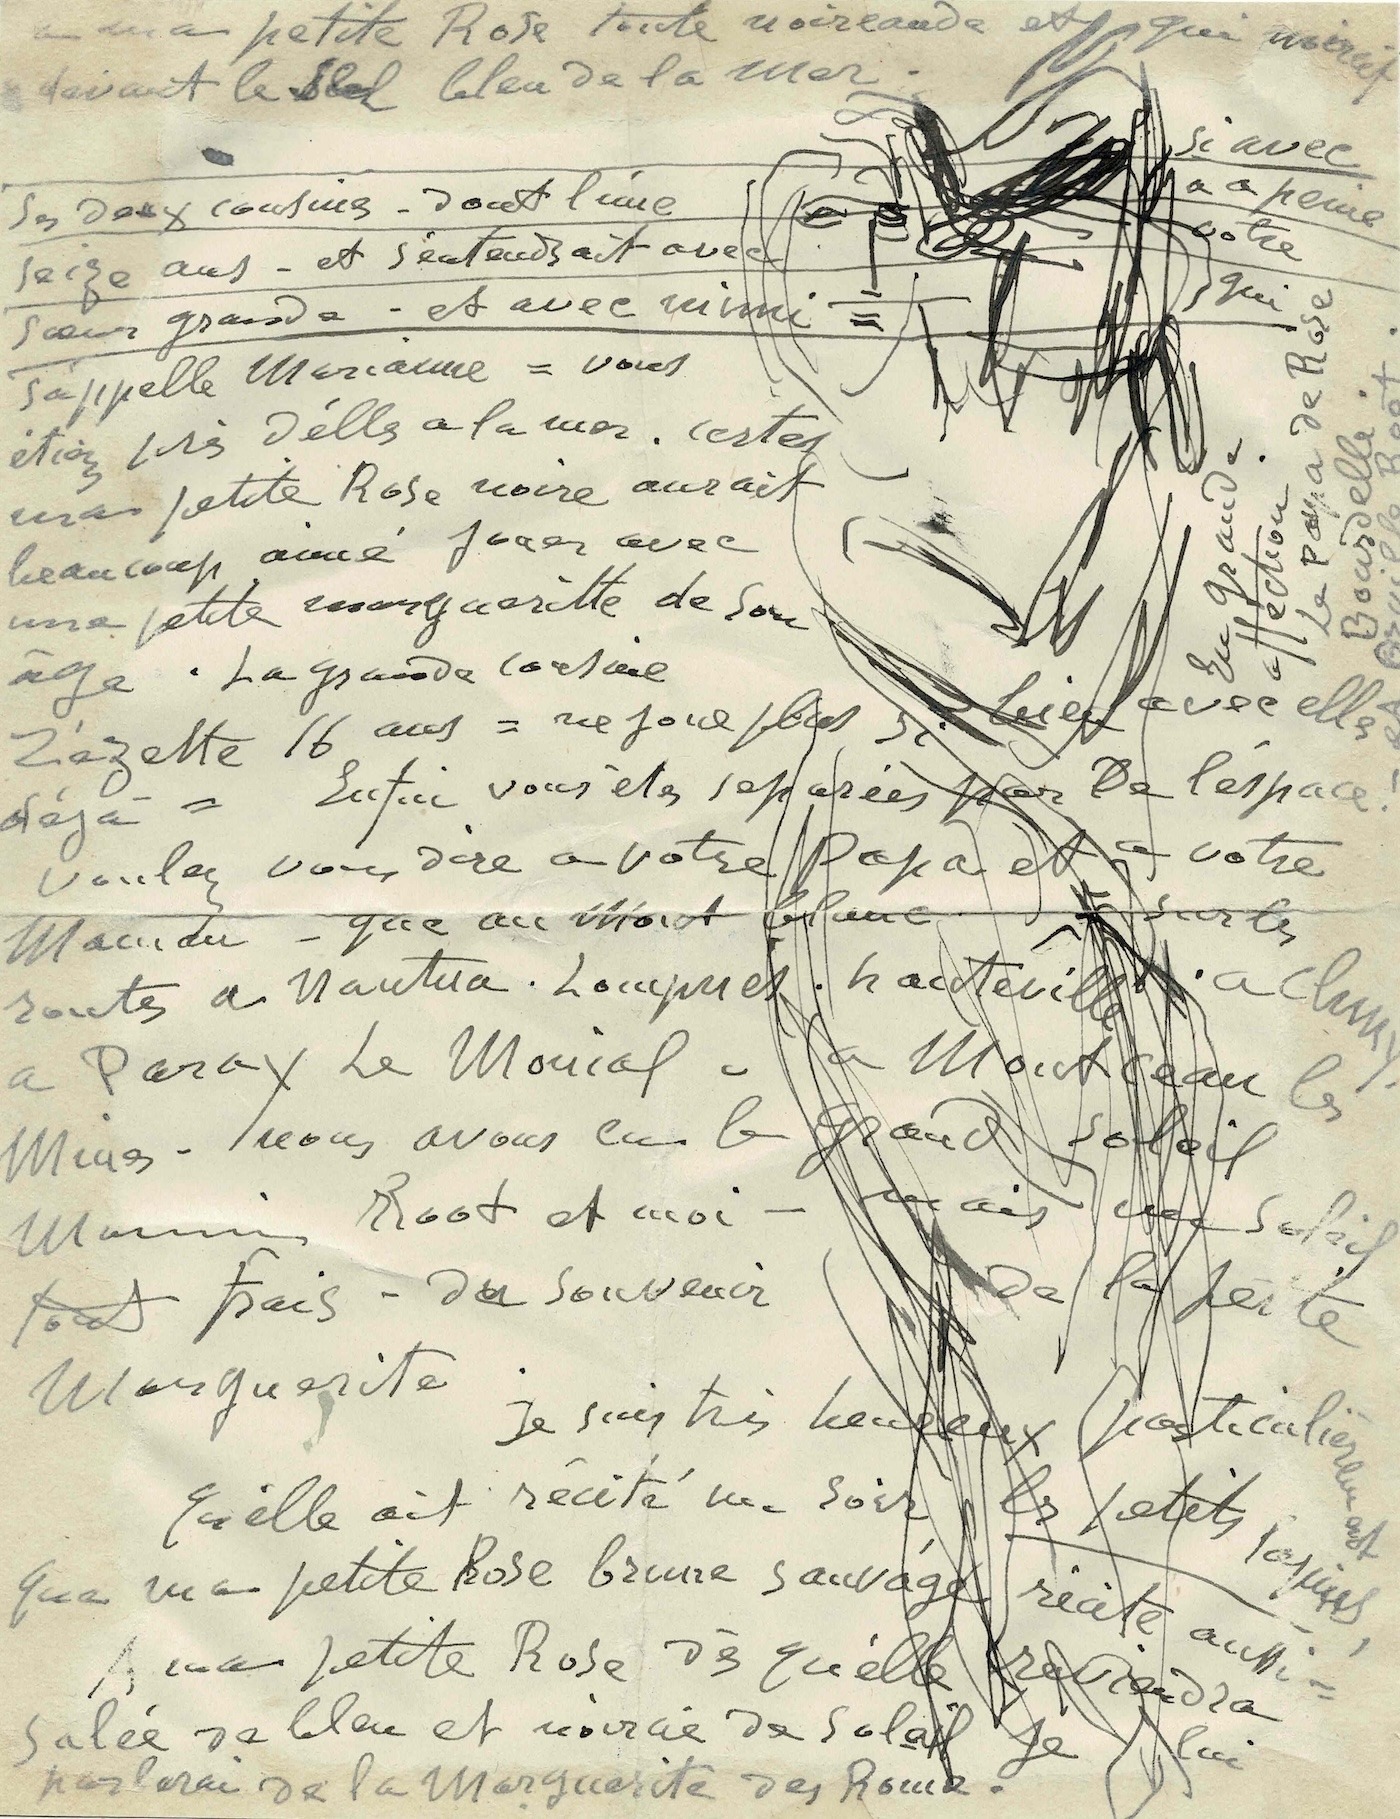 a ma petite Rose toute noireaude et qui noircit
devant le bleu de la mer.
si avec
ses deux cousines - dont l'une a a peine
seize ans - et s'entendrait avec votre
sœur grande - et avec mimi qui
s'appelle Marianne = vous
étiez près d'elles a la mer. certes
ma petite Rose noire aurait
beaucoup aimé jouer avec
une petite margueritte de son
âge. La grande cousine
Zézette 16 ans = ne joue plus si bien avec elles
déjà = Enfin vous êtes separées par De l'éspace!
voulez vous dire a votre Papa et a votre
Maman - que au Mont blanc sur les
routes a Nantua. Lompnes. hauteville. a Cluny,
a Paray Le Monial - a Montceau les
Mines - nous avons eu le grand soleil
Root et moi - mais un soleil
tout frais - du souvenir de la petite
Marguerite
je suis très heureux particulièrement
qu'élle ait récité un soir les petits lapins,
que ma petite Rose brune sauvage récite aussi =
A ma petite Rose dès qu'élle reviendra
salée de bleu et noircie de soleil je lui
parlerai de la Marguerite des Roume.
En grande
affection.
Le papa de Rose
Bourdelle.